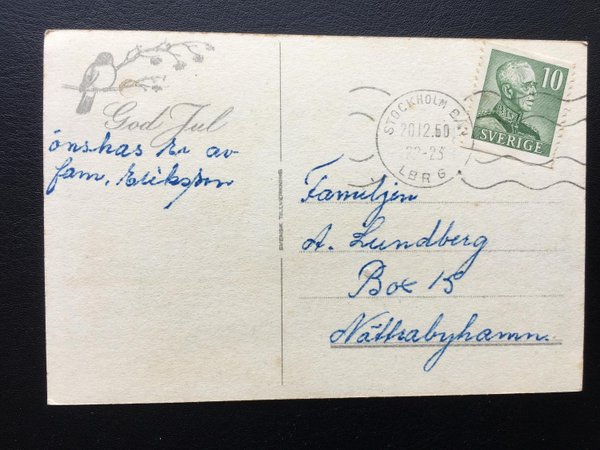 God Jul
önskas Er av
fam. Eriksson
SVENSK TILLVERKNING
STOCKHOLM
20.12.50
-23
LBR 6
10
SVERIGE
Familjen
A. Lundberg
Box 15
Nättrabyhamn.